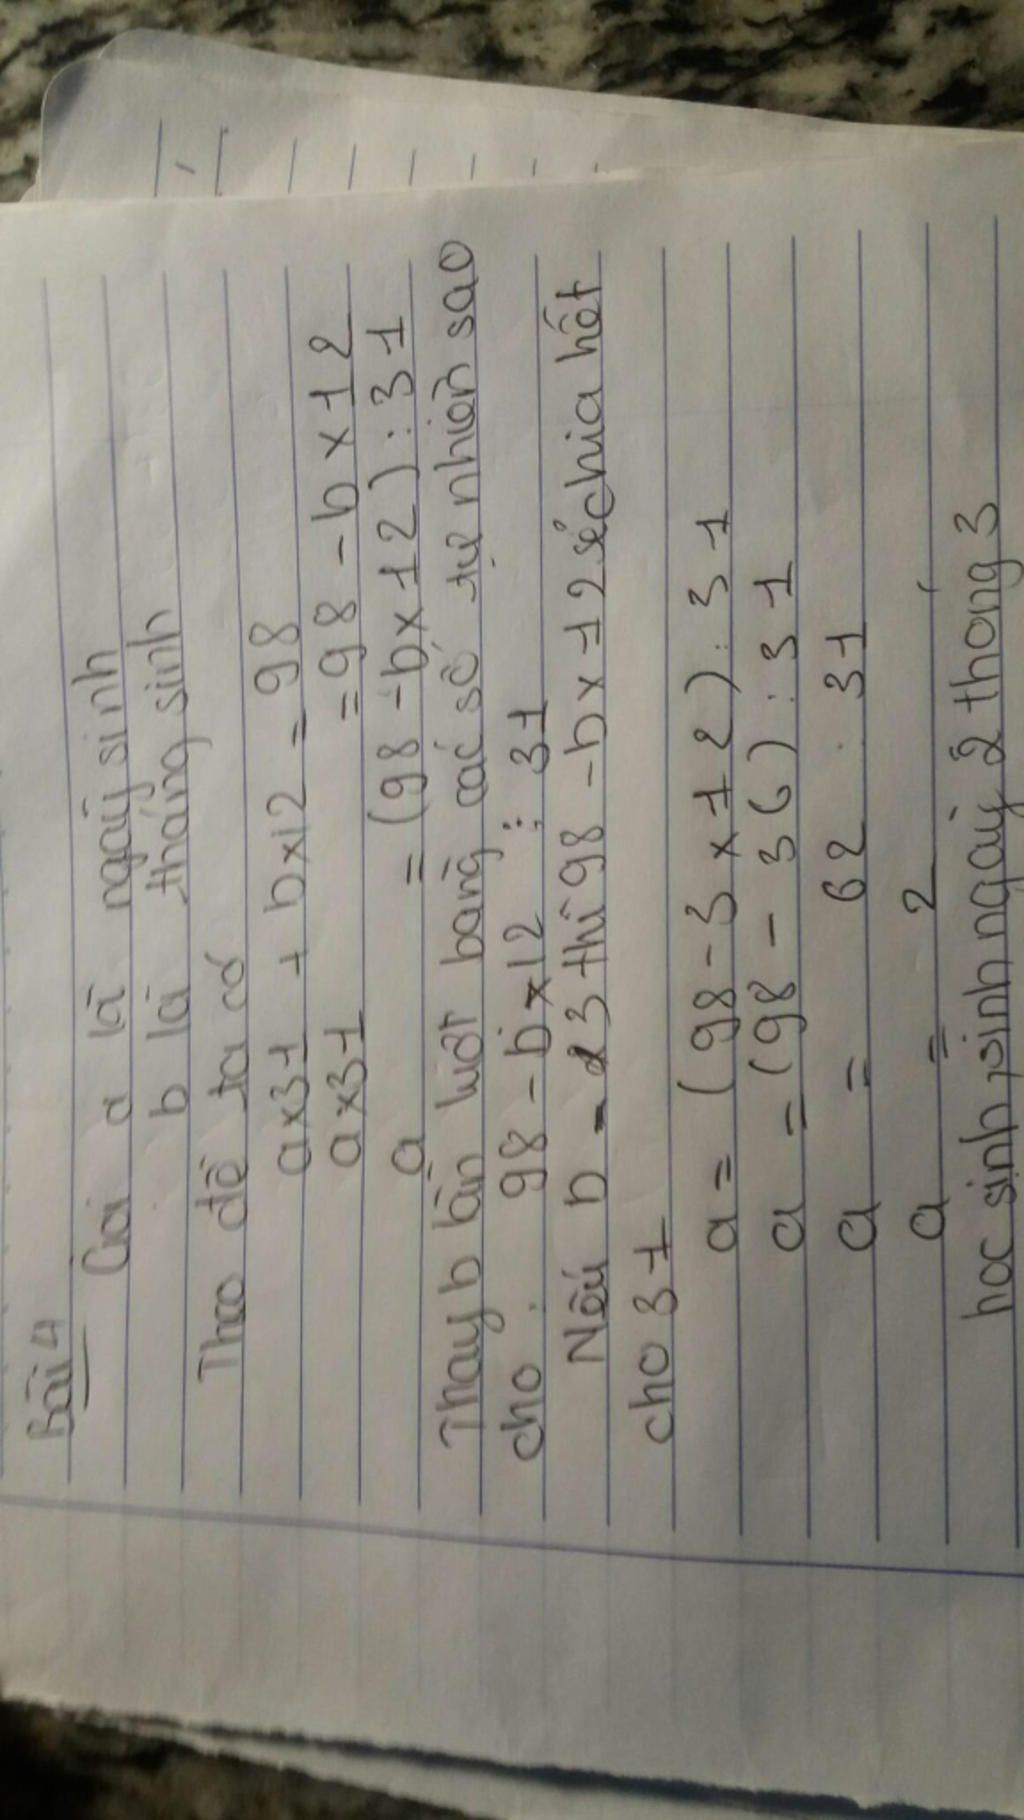 Bài 4
Gọi a là ngày sinh
b là tháng sinh
Theo đề ta có
a x 31 + b x 12 = 98
a x 31 = 98 - b x 12
a = (98 - b x 12) : 31
Thay b lần lượt bằng các số tự nhiên sao
cho : 98 - b x 12 ⋮ 31
Nếu b = 3 thì 98 - b x 12 sẽ chia hết
cho 31
a = (98 - 3 x 12) : 31
a = (98 - 36) : 31
a = 62 : 31
a = 2
học sinh sinh ngày 2 thong 3